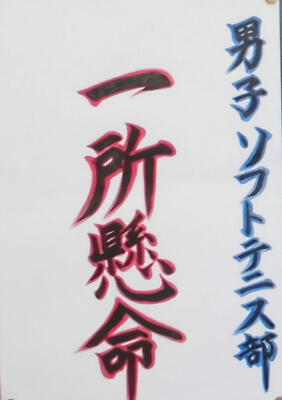 男子ソフトテニス部
一所懸命